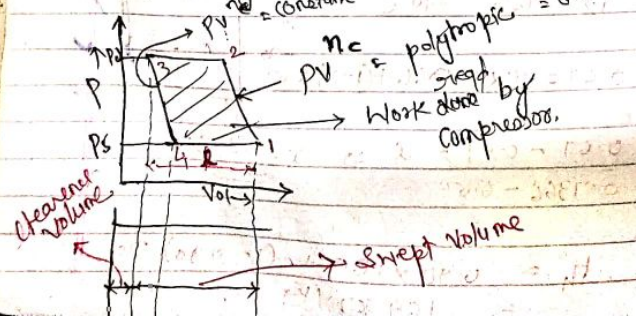 PV^ne = constant
↑Pd 3 2
P
PV^nc = polytropic
reqd.
Work done by
compressor.
Ps 4 1
Vol→
clearence
volume
Swept Volume